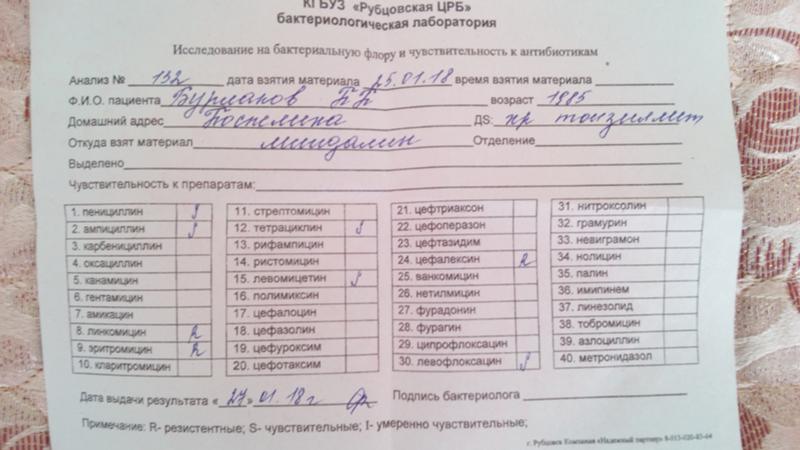 КГБУЗ «Рубцовская ЦРБ»
бактериологическая лаборатория
Исследование на бактериальную флору и чувствительность к антибиотикам
Анализ № 132 дата взятия материала 25.01.18 время взятия материала
Ф.И.О. пациента Бурлаков возраст 1985
Домашний адрес DS: хр тонзиллит
Откуда взят материал миндалин Отделение
Выделено
Чувствительность к препаратам:
1. пенициллин S
2. ампициллин S
3. карбенициллин
4. оксациллин
5. канамицин
6. гентамицин
7. амикацин
8. линкомицин R
9. эритромицин R
10. кларитромицин
11. стрептомицин
12. тетрациклин S
13. рифампицин
14. ристомицин
15. левомицетин S
16. полимиксин
17. цефалоцин
18. цефазолин
19. цефуроксим
20. цефотаксим
21. цефтриаксон
22. цефоперазон
23. цефтазидим
24. цефалексин R
25. ванкомицин
26. нетилмицин
27. фурадонин
28. фурагин
29. ципрофлоксацин
30. левофлоксацин S
31. нитроксолин
32. грамурин
33. невиграмон
34. нолицин
35. палин
36. имипинем
37. линезолид
38. тобромицин
39. азлоциллин
40. метронидазол
Дата выдачи результата «27» 01. 18г Подпись бактериолога
Примечание: R- резистентные; S- чувствительные; I- умеренно чувствительные;
г. Рубцовск Компания «Надежный партнер»